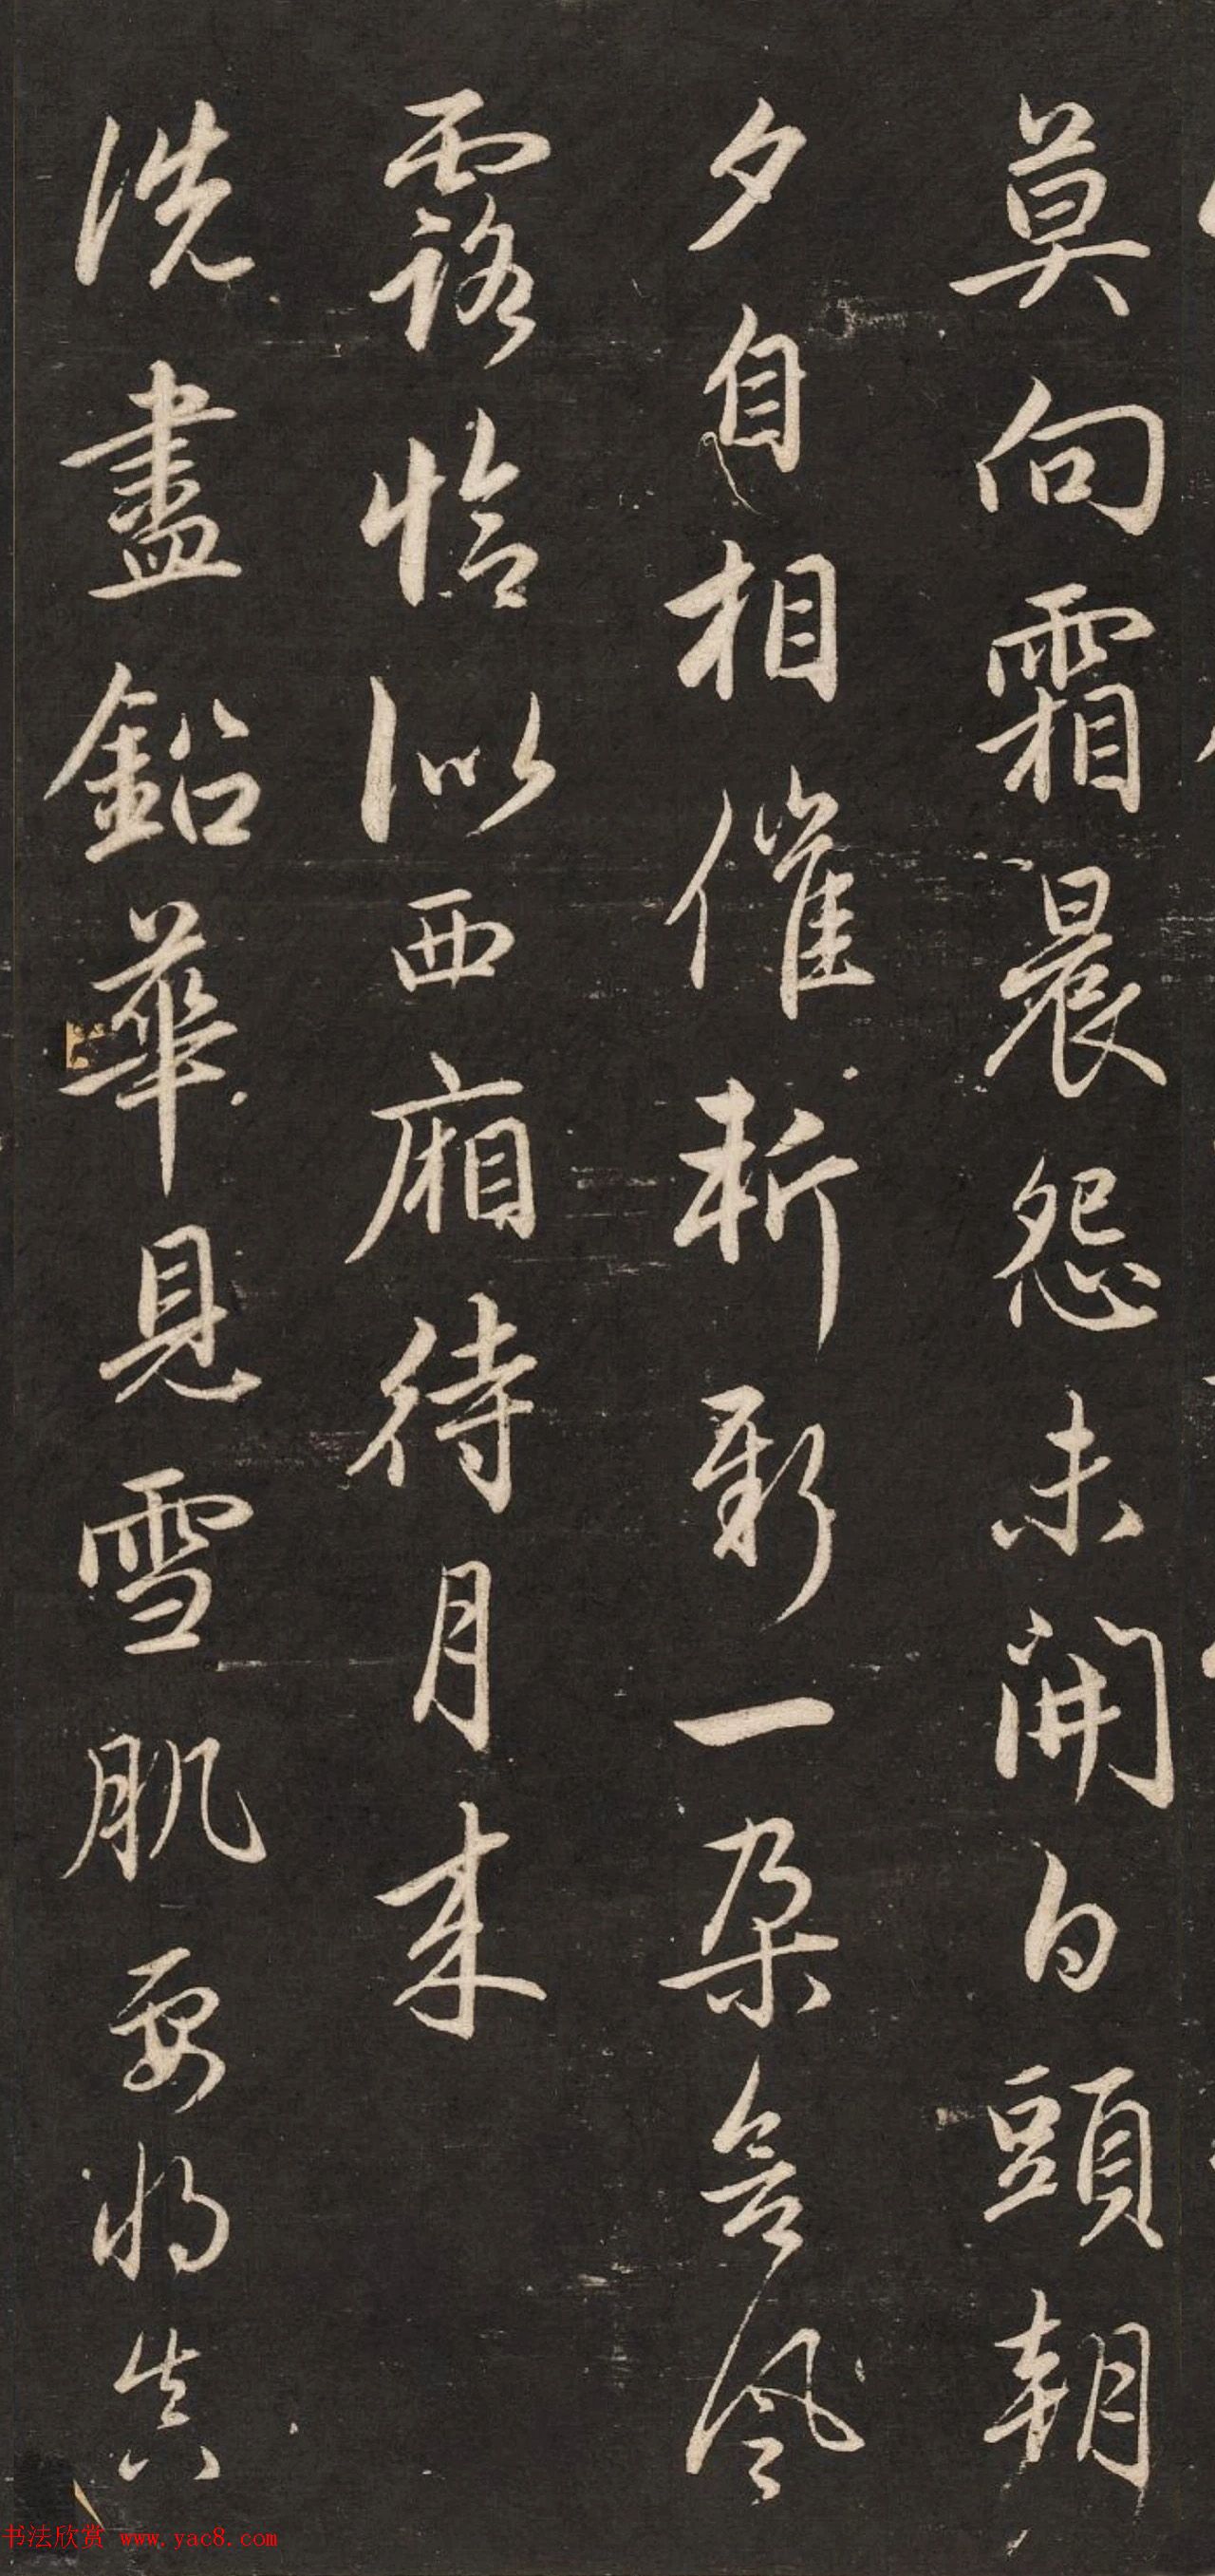 莫向霜晨怨未開白頭朝
夕自相催斬新一朵含風
露恰似西廂待月来
洗盡鉛華見雪肌要將真
书法欣赏 www.yac8.com